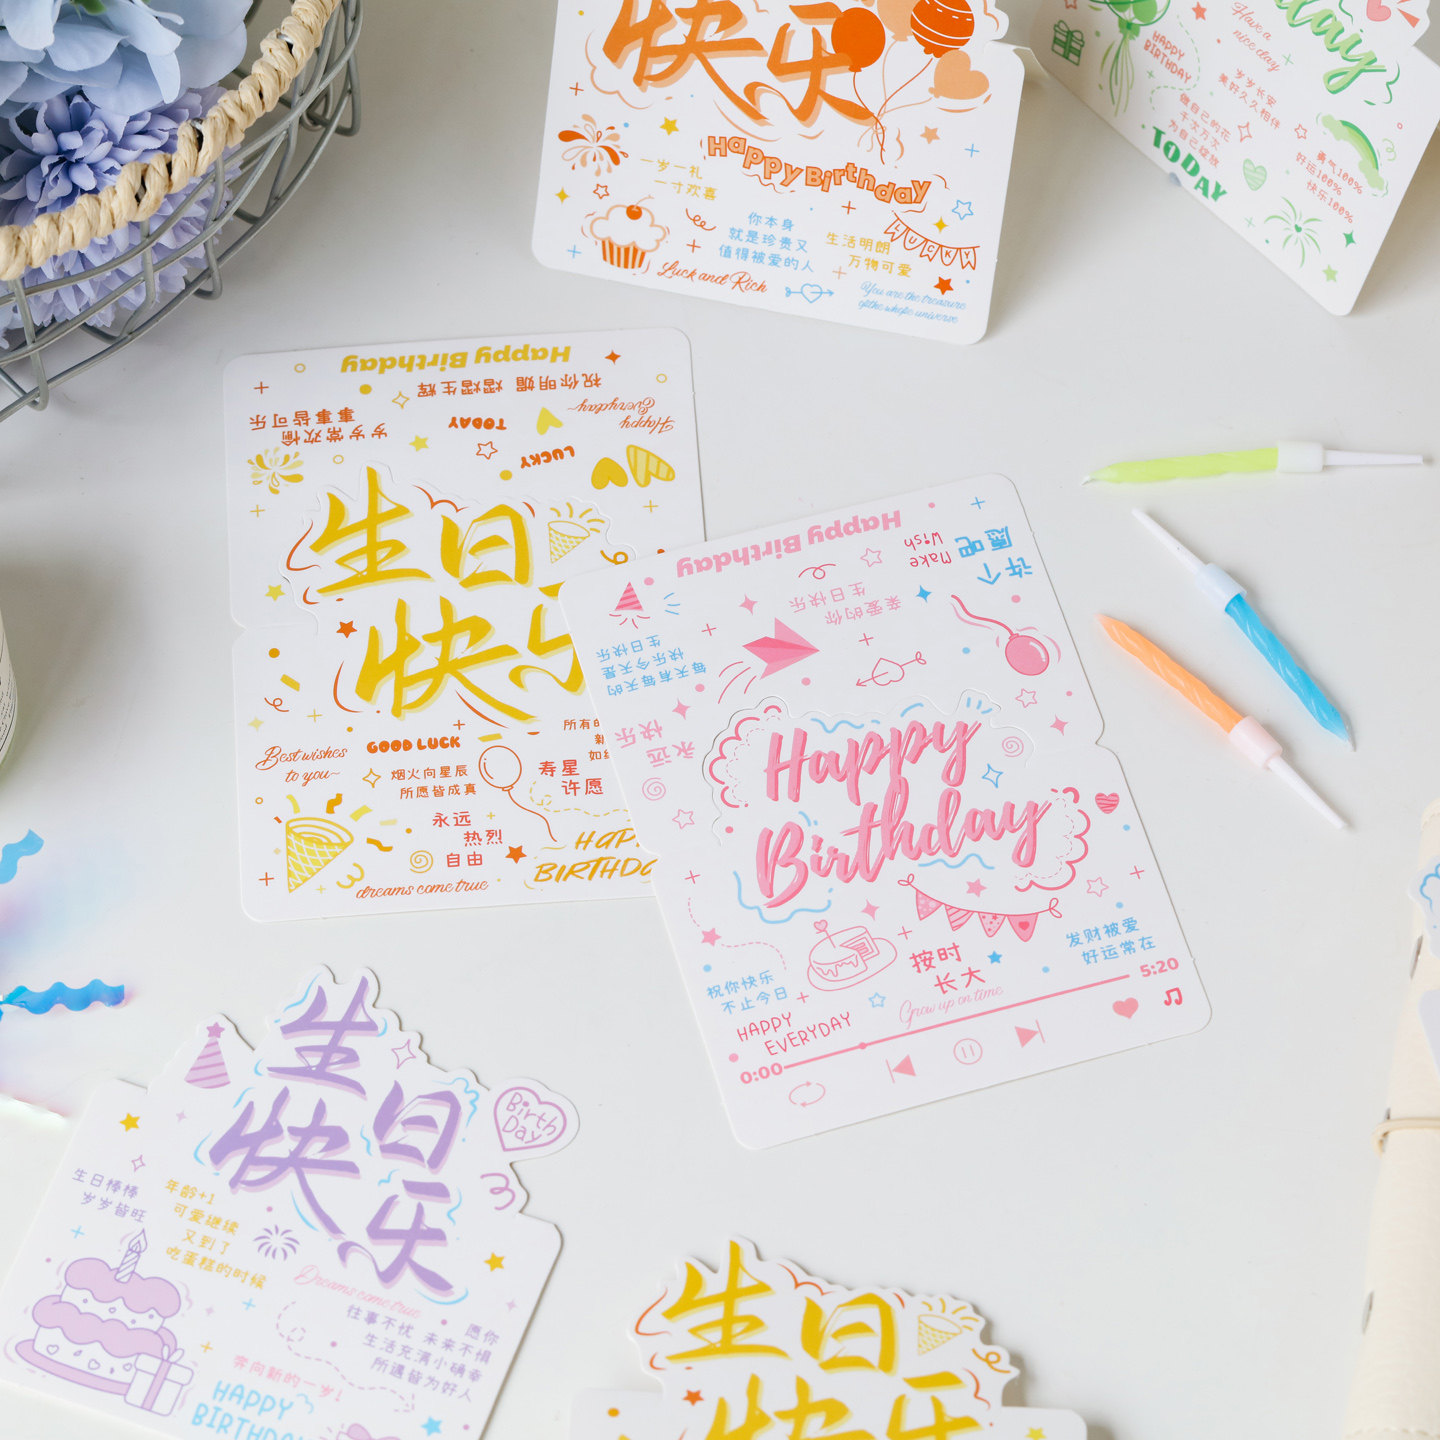 快乐
Happy Birthday
一岁一礼
一寸欢喜
你本身
就是珍贵又
值得被爱的人
生活明朗
万物可爱
LUCKY
Luck and Rich
You are the treasure
of the whole universe
HAPPY
BIRTHDAY
Have a
nice day
岁岁长安
美好久久相伴
做自己的花
千次万次
为自己绽放
TODAY
勇气100%
好运100%
快乐100%
Happy Birthday
祝你明媚 熠熠生辉
Happy
Everyday~
岁岁常欢愉
事事皆可乐
TODAY
LUCKY
生日
快乐
Best wishes
to you~
GOOD LUCK
烟火向星辰
所愿皆成真
寿星
许愿
永远
热烈
自由
dreams come true
BIRTHD
Happy Birthday
许个
愿吧
Make
Wish
亲爱的你
生日快乐
每天有每天的
快乐今天是
生日快乐
永远
快乐
Happy
Birthday
发财被爱
好运常在
按时
长大
Grow up on time
祝你快乐
不止今日
HAPPY
EVERYDAY
0:00
5:20
生日
快乐
Birth
Day
生日棒棒
岁岁皆旺
年龄+1
可爱继续
又到了
吃蛋糕的时候
Dreams come true
愿你
往事不忧 未来不惧
生活充满小确幸
所遇皆为好人
奔向新的一岁!
HAPPY
BIRTHDAY
生日
快乐